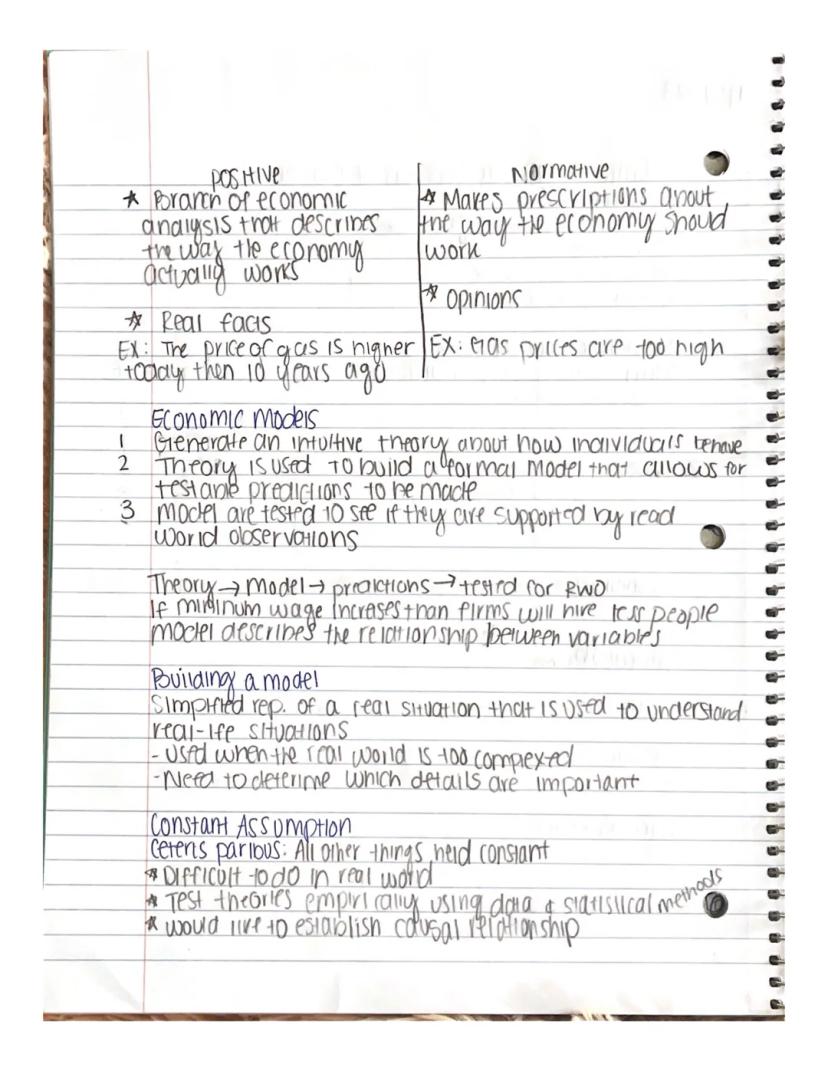 Positive
* Branch of economic
analysis that describes
the way the economy
actually works
* Real facts
Ex: The price of gas is higher
today then 10 years ago
Normative
* Makes prescriptions about
the way the economy should
work
* Opinions
Ex: Gas prices are too high
Economic Models
1 Generate an intuitive theory about how individuals behave
2 Theory is used to build a formal model that allows for
testable predictions to be made
3 Model are tested to see if they are supported by read
world observations
Theory → model → predictions → tested for RWO
If minimum wage increases than firms will hire less people
model describes the relationship between variables
Building a model
Simplified rep. of a real situation that is used to understand
real-life situations
- Used when the real world is too complexed
- Need to deterime which details are important
Constant Assumption
Ceteris paribus: All other things held constant
* Difficult to do in real world
* Test theories empirically using data & statistical methods
* would like to establish causal relationship